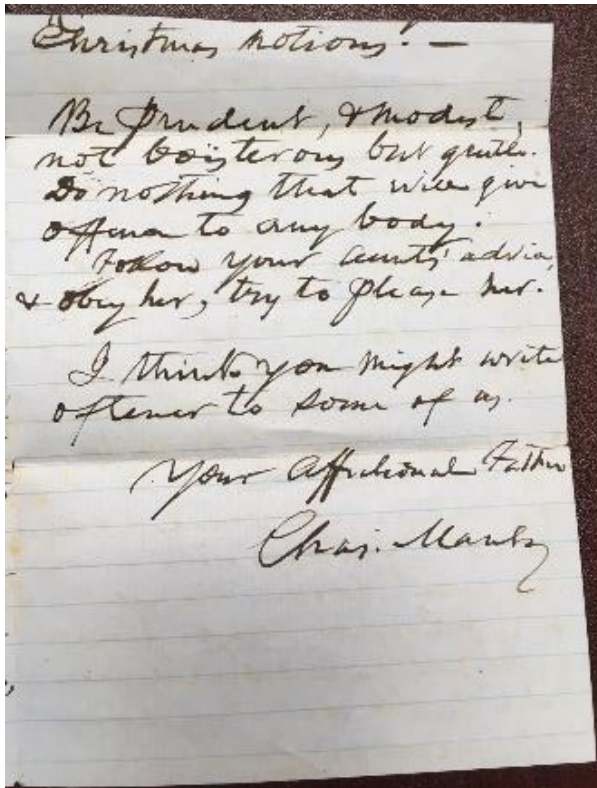 "Christmas notions! —
Be prudent, & modest,
not boisterous but gentle.
Do nothing that will give
offence to any body.
Follow your aunts' advice,
& obey her, try to please her.
I think you might write
oftener to some of us.
Your affectionate Father
Chas.